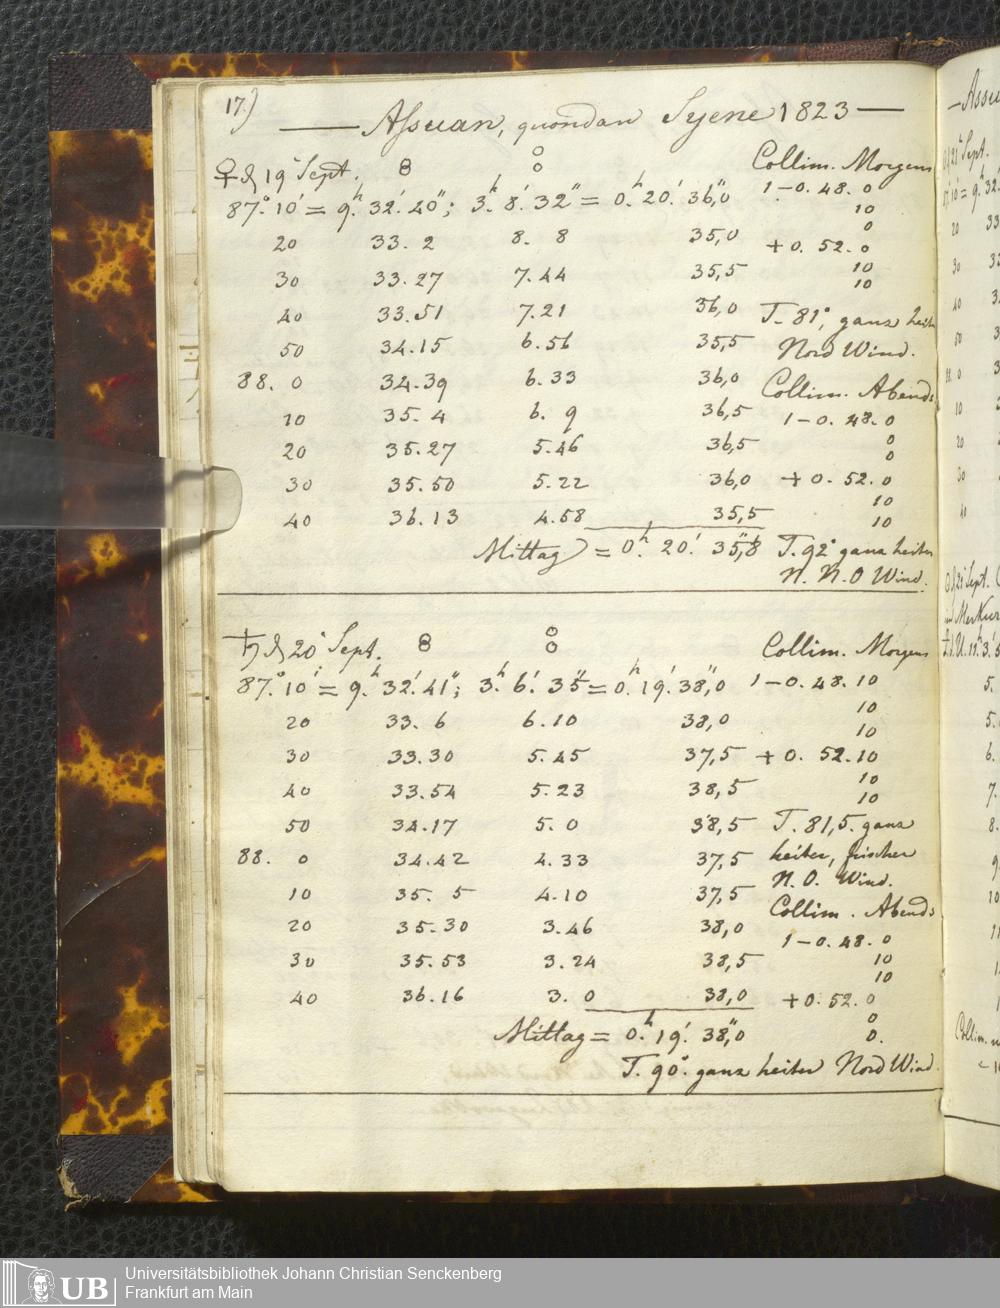 17.)
— Assuan, quondam Syene 1823 —
♀ d 19' Sept. 8 Collim. Morgens
87.° 10' = 9.h 32.' 40"; 3.h 8.' 32" = 0.h 20.' 36,"0 1 - 0. 48. 0
10
0
20 33. 2 8. 8 35,0 + 0. 52. 0
30 33. 27 7. 44 35,5 10
10
40 33. 51 7. 21 36,0 T. 81°, ganz heiter
50 34. 15 6. 56 35,5 Nord Wind.
88. 0 34. 39 6. 33 36,0 Collim. Abends
10 35. 4 6. 9 36,5 1 - 0. 48. 0
20 35. 27 5. 46 36,5 0
0
30 35. 50 5. 22 36,0 + 0. 52. 0
10
40 36. 13 4. 58 35,5 10
Mittag = 0.h 20.' 35,"8 T. 92° ganz heiter
N. N. O Wind.
♄ d 20' Sept. 8 Collim. Morgens
87.° 10' = 9.h 32.' 41"; 3.h 6.' 35" = 0.h 19.' 38,"0 1 - 0. 48. 10
10
20 33. 6 6. 10 38,0 10
30 33. 30 5. 45 37,5 + 0. 52. 10
10
40 33. 54 5. 23 38,5 10
50 34. 17 5. 0 38,5 T. 81,5. ganz
88. 0 34. 42 4. 33 37,5 heiter, frischer
N. O. Wind.
10 35. 5 4. 10 37,5 Collim. Abends
20 35. 30 3. 46 38,0 1 - 0. 48. 0
30 35. 53 3. 24 38,5 10
10
40 36. 16 3. 0 38,0 + 0. 52. 0
0
Mittag = 0.h 19.' 38,"0 0.
T. 90°. ganz heiter Nord Wind.
UB
Universitätsbibliothek Johann Christian Senckenberg
Frankfurt am Main